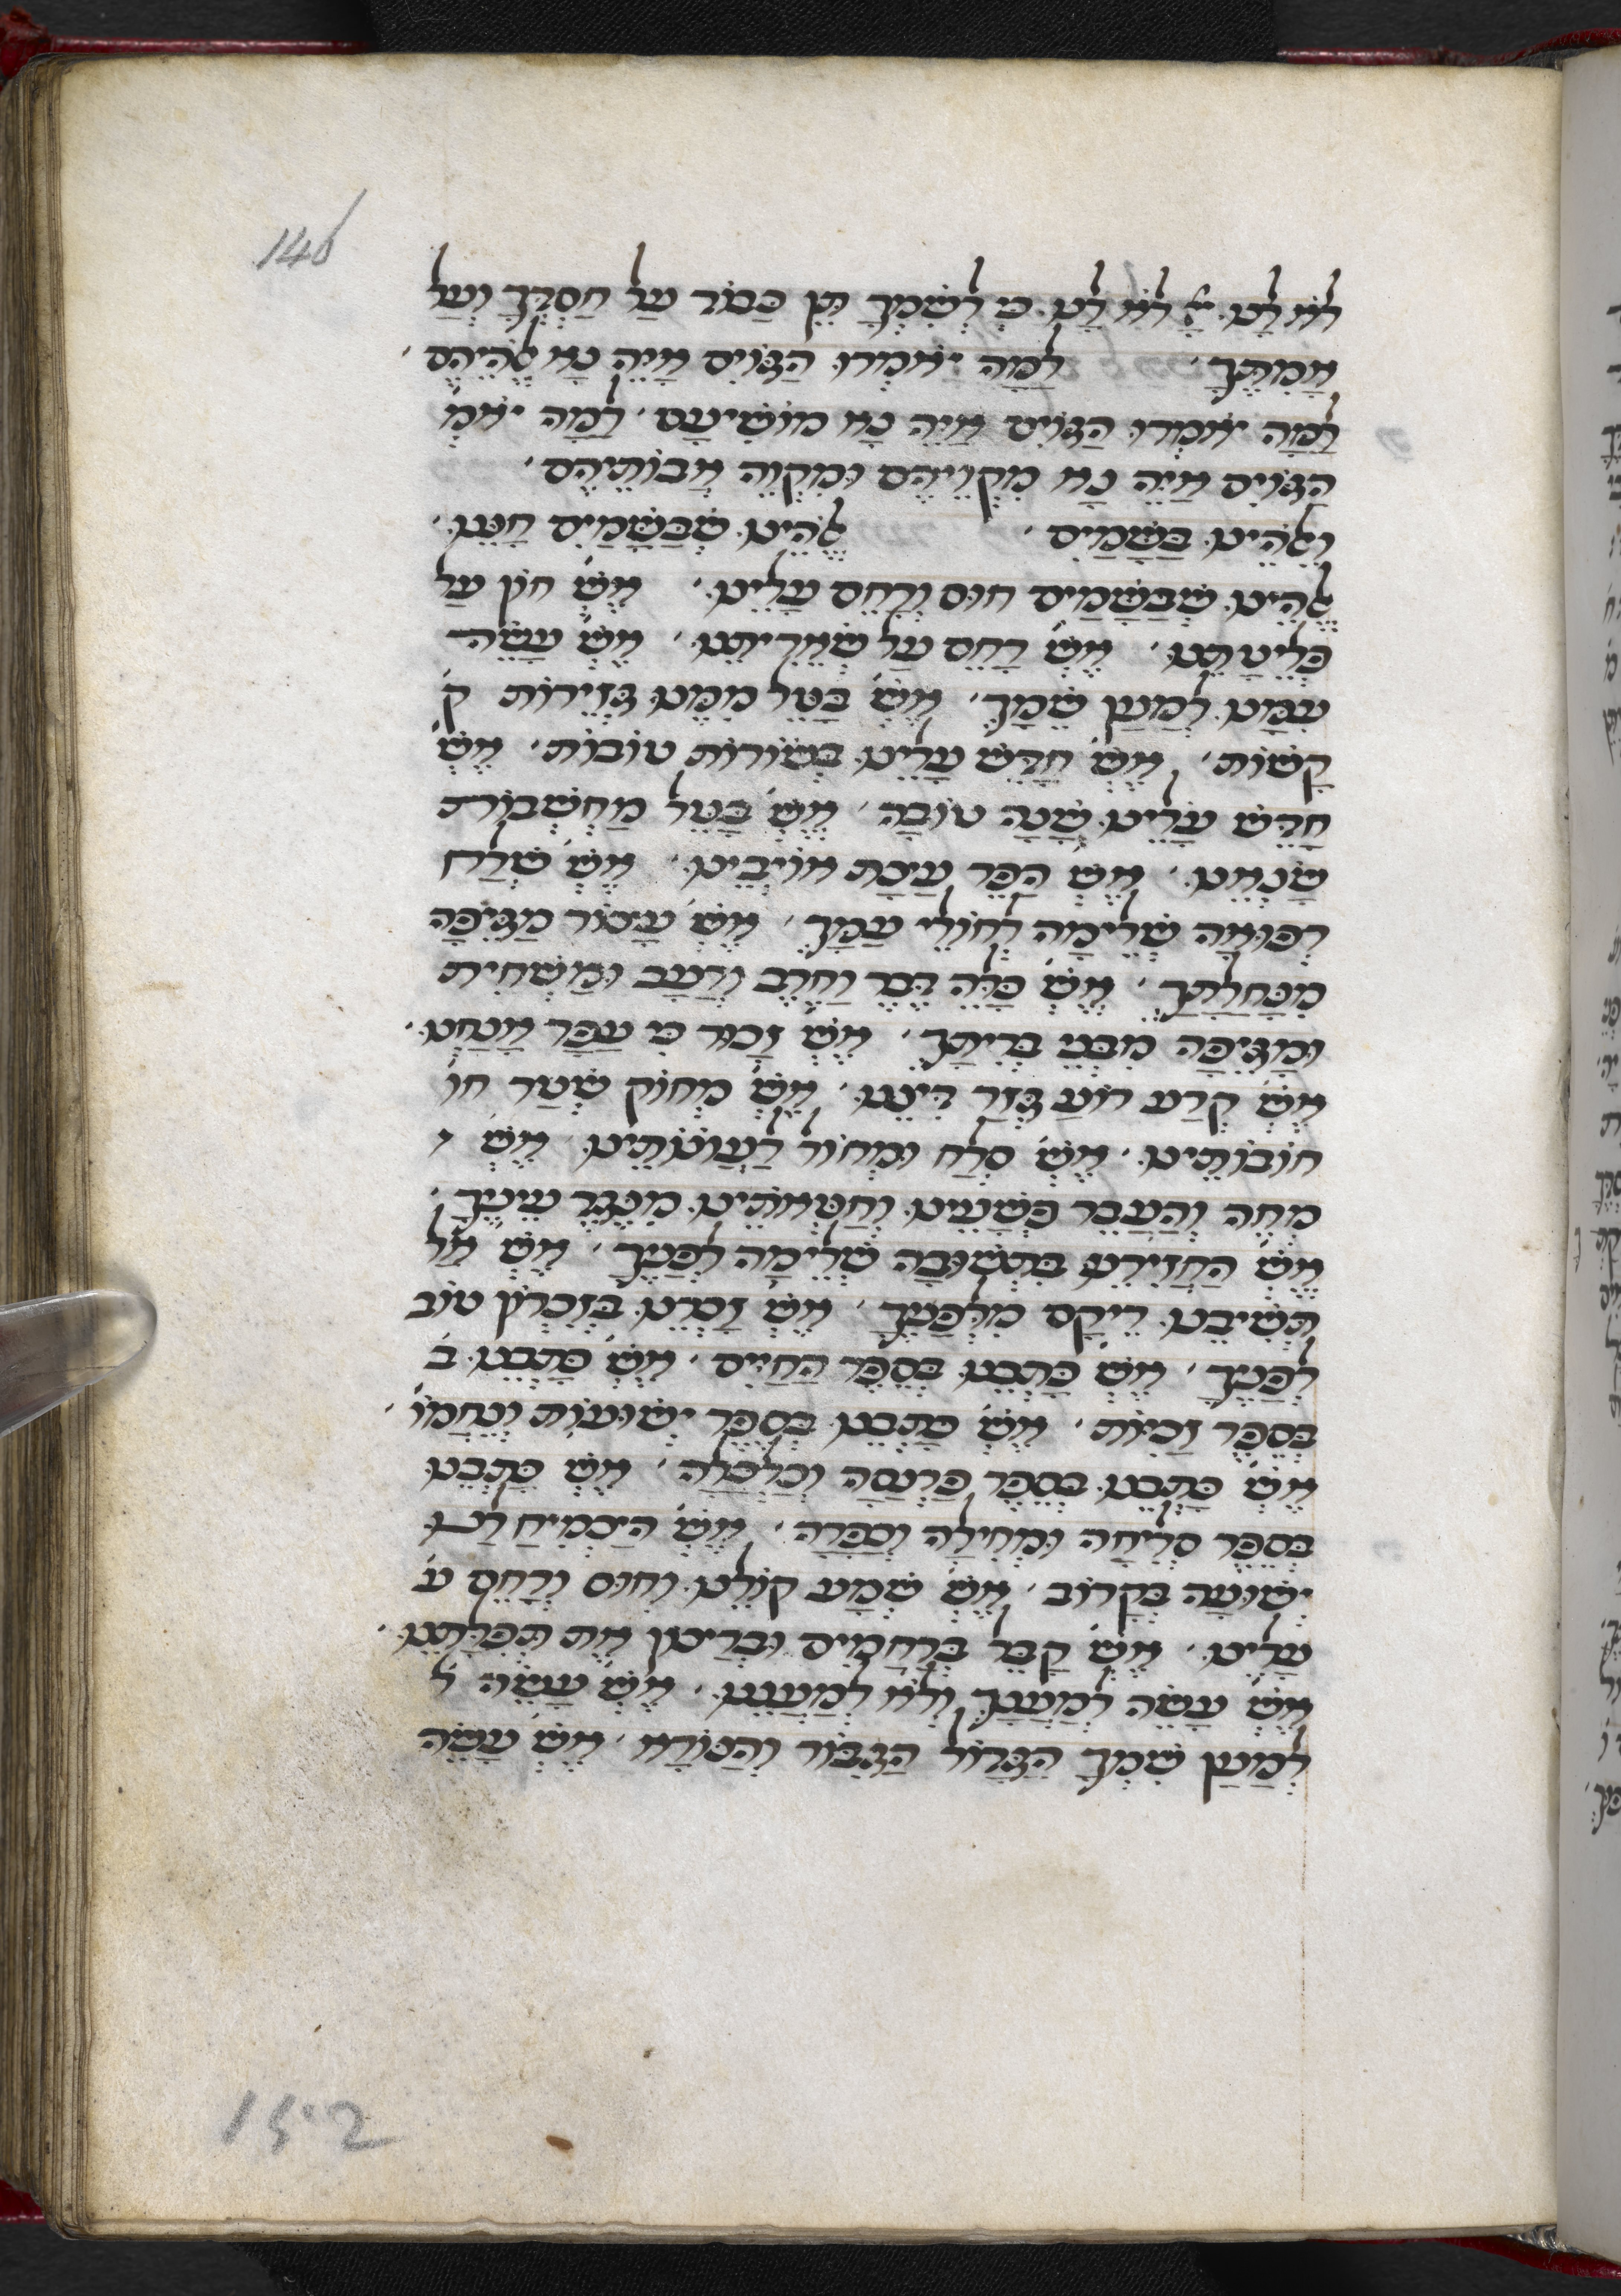 146
לֹא לָנוּ יְיָ לֹא לָנוּ כִּי לְשִׁמְךָ תֵּן כָּבוֹד עַל חַסְדְּךָ וְעַל
אֲמִתֶּךָ ׳ לָמָּה יֹאמְרוּ הַגּוֹיִם אַיֵּה נָא אֱלֹהֵיהֶם ׳
לָמָּה יֹאמְרוּ הַגּוֹיִם אַיֵּה נָא מוֹשִׁיעָם ׳ לָמָּה יֹאמְ
הַגּוֹיִם אַיֵּה נָא מִקְוֵיהֶם וּמִקְוֵה אֲבוֹתֵיהֶם ׳
וֵאלֹהֵינוּ בַּשָּׁמַיִם ׳ אֱלֹהֵינוּ שֶׁבַּשָּׁמַיִם חָנֵּנוּ ׳
אֱלֹהֵינוּ שֶׁבַּשָּׁמַיִם חוּס וְרַחֵם עָלֵינוּ ׳ אֱשֶׁ׳ חוֹן עַל
פְּלֵיטָתֵנוּ ׳ אֱשֶׁ׳ רַחֵם עַל שְׁאֵרִיתֵנוּ ׳ אֱשֶׁ׳ עֲשֵׂה
עִמָּנוּ לְמַעַן שְׁמֶךָ ׳ אֱשֶׁ׳ בַּטֵּל מִמֶּנּוּ גְּזֵירוֹת ק
קָשׁוֹת ׳ אֱשֶׁ׳ חַדֵּשׁ עָלֵינוּ בְּשׂוֹרוֹת טוֹבוֹת ׳ אֱשֶׁ׳
חַדֵּשׁ עָלֵינוּ שָׁנָה טוֹבָה ׳ אֱשֶׁ׳ בַּטֵּל מַחְשְׁבוֹת
שׂנְאֵנוּ ׳ אֱשֶׁ׳ הָפֵר עֲצַת אוֹיְבֵינוּ ׳ אֱשֶׁ׳ שְׁלַח
רְפוּאָה שְׁלֵימָה לְחוֹלֵי עַמֶּךָ ׳ אֱשֶׁ׳ עֲצוֹר מַגֵּיפָה
מִנַּחֲלָתֶךָ ׳ אֱשֶׁ׳ כַּלֵּה דֶּבֶר וְחֶרֶב וְרָעָב וּמַשְׁחִית
וּמַגֵּיפָה מִבְּנֵי בְּרִיתֶךָ ׳ אֱשֶׁ׳ זָכוּר כִּי עָפָר אֲנָחְנוּ ׳
אֱשֶׁ׳ קְרַע רוֹעַ גְּזַר דִּינֵנוּ ׳ אֱשֶׁ׳ מְחוֹק שְׁטַר חוֹ
חוֹבוֹתֵינוּ ׳ אֱשֶׁ׳ סְלַח וּמְחוֹל לַעֲוֹנוֹתֵינוּ אֱשֶׁ׳
מְחֵה וְהַעֲבֵר פְּשָׁעֵינוּ וְחַטֹּאתֵינוּ מִנֶּגֶד עֵינֶיךָ ׳
אֱשֶׁ׳ הַחֲזִירֵנוּ בִּתְשׁוּבָה שְׁלֵימָה לְפָנֶיךָ ׳ אֱשֶׁ׳ אַל
תְּשִׁיבֵנוּ רֵיקָם מִלְּפָנֶיךָ ׳ אֱשֶׁ׳ זָכְרֵנוּ בְּזִכְרוֹן טוֹב
לְפָנֶיךָ ׳ אֱשֶׁ׳ כָּתְבֵנוּ בְּסֵפֶר הַחַיִּים ׳ אֱשֶׁ׳ כָּתְבֵנוּ בְּ
בְּסֵפֶר זָכִיּוֹת ׳ אֱשֶׁ׳ כָּתְבֵנוּ בְּסֵפֶר יְשׁוּעוֹת וְנֶחָמוֹ׳
אֱשֶׁ׳ כָּתְבֵנוּ בְּסֵפֶר פַּרְנָסָה וְכַלְכָּלָה ׳ אֱשֶׁ׳ כָּתְבֵנוּ
בְּסֵפֶר סְלִיחָה וּמְחִילָה וְכַפָּרָה ׳ אֱשֶׁ׳ הַצְמִיחַ לָנוּ
יְשׁוּעָה בְּקָרוֹב ׳ אֱשֶׁ׳ שְׁמַע קוֹלֵנוּ וְחוּס וְרַחֵם ע
עָלֵינוּ ׳ אֱשֶׁ׳ קַבֵּל בְּרַחֲמִים וּבְרָצוֹן אֶת תְּפִלָּתֵנוּ ׳
אֱשֶׁ׳ עֲשֵׂה לְמַעֲנֶךָ וְלֹא לְמַעֲנֵנוּ ׳ אֱשֶׁ׳ עֲשֵׂה ל
לְמַעַן שִׁמְךָ הַגָּדוֹל הַגִּבּוֹר וְהַנּוֹרָא ׳ אֱשֶׁ׳ עֲשֵׂה
152